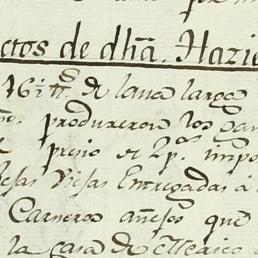 ctos de dhã. Hazie
16½ @s de lana larga
produxeron los gan
precio de 2 ps. impo
esas Viejas Entregadas á
Carneros añejos que
la casa de Mexico